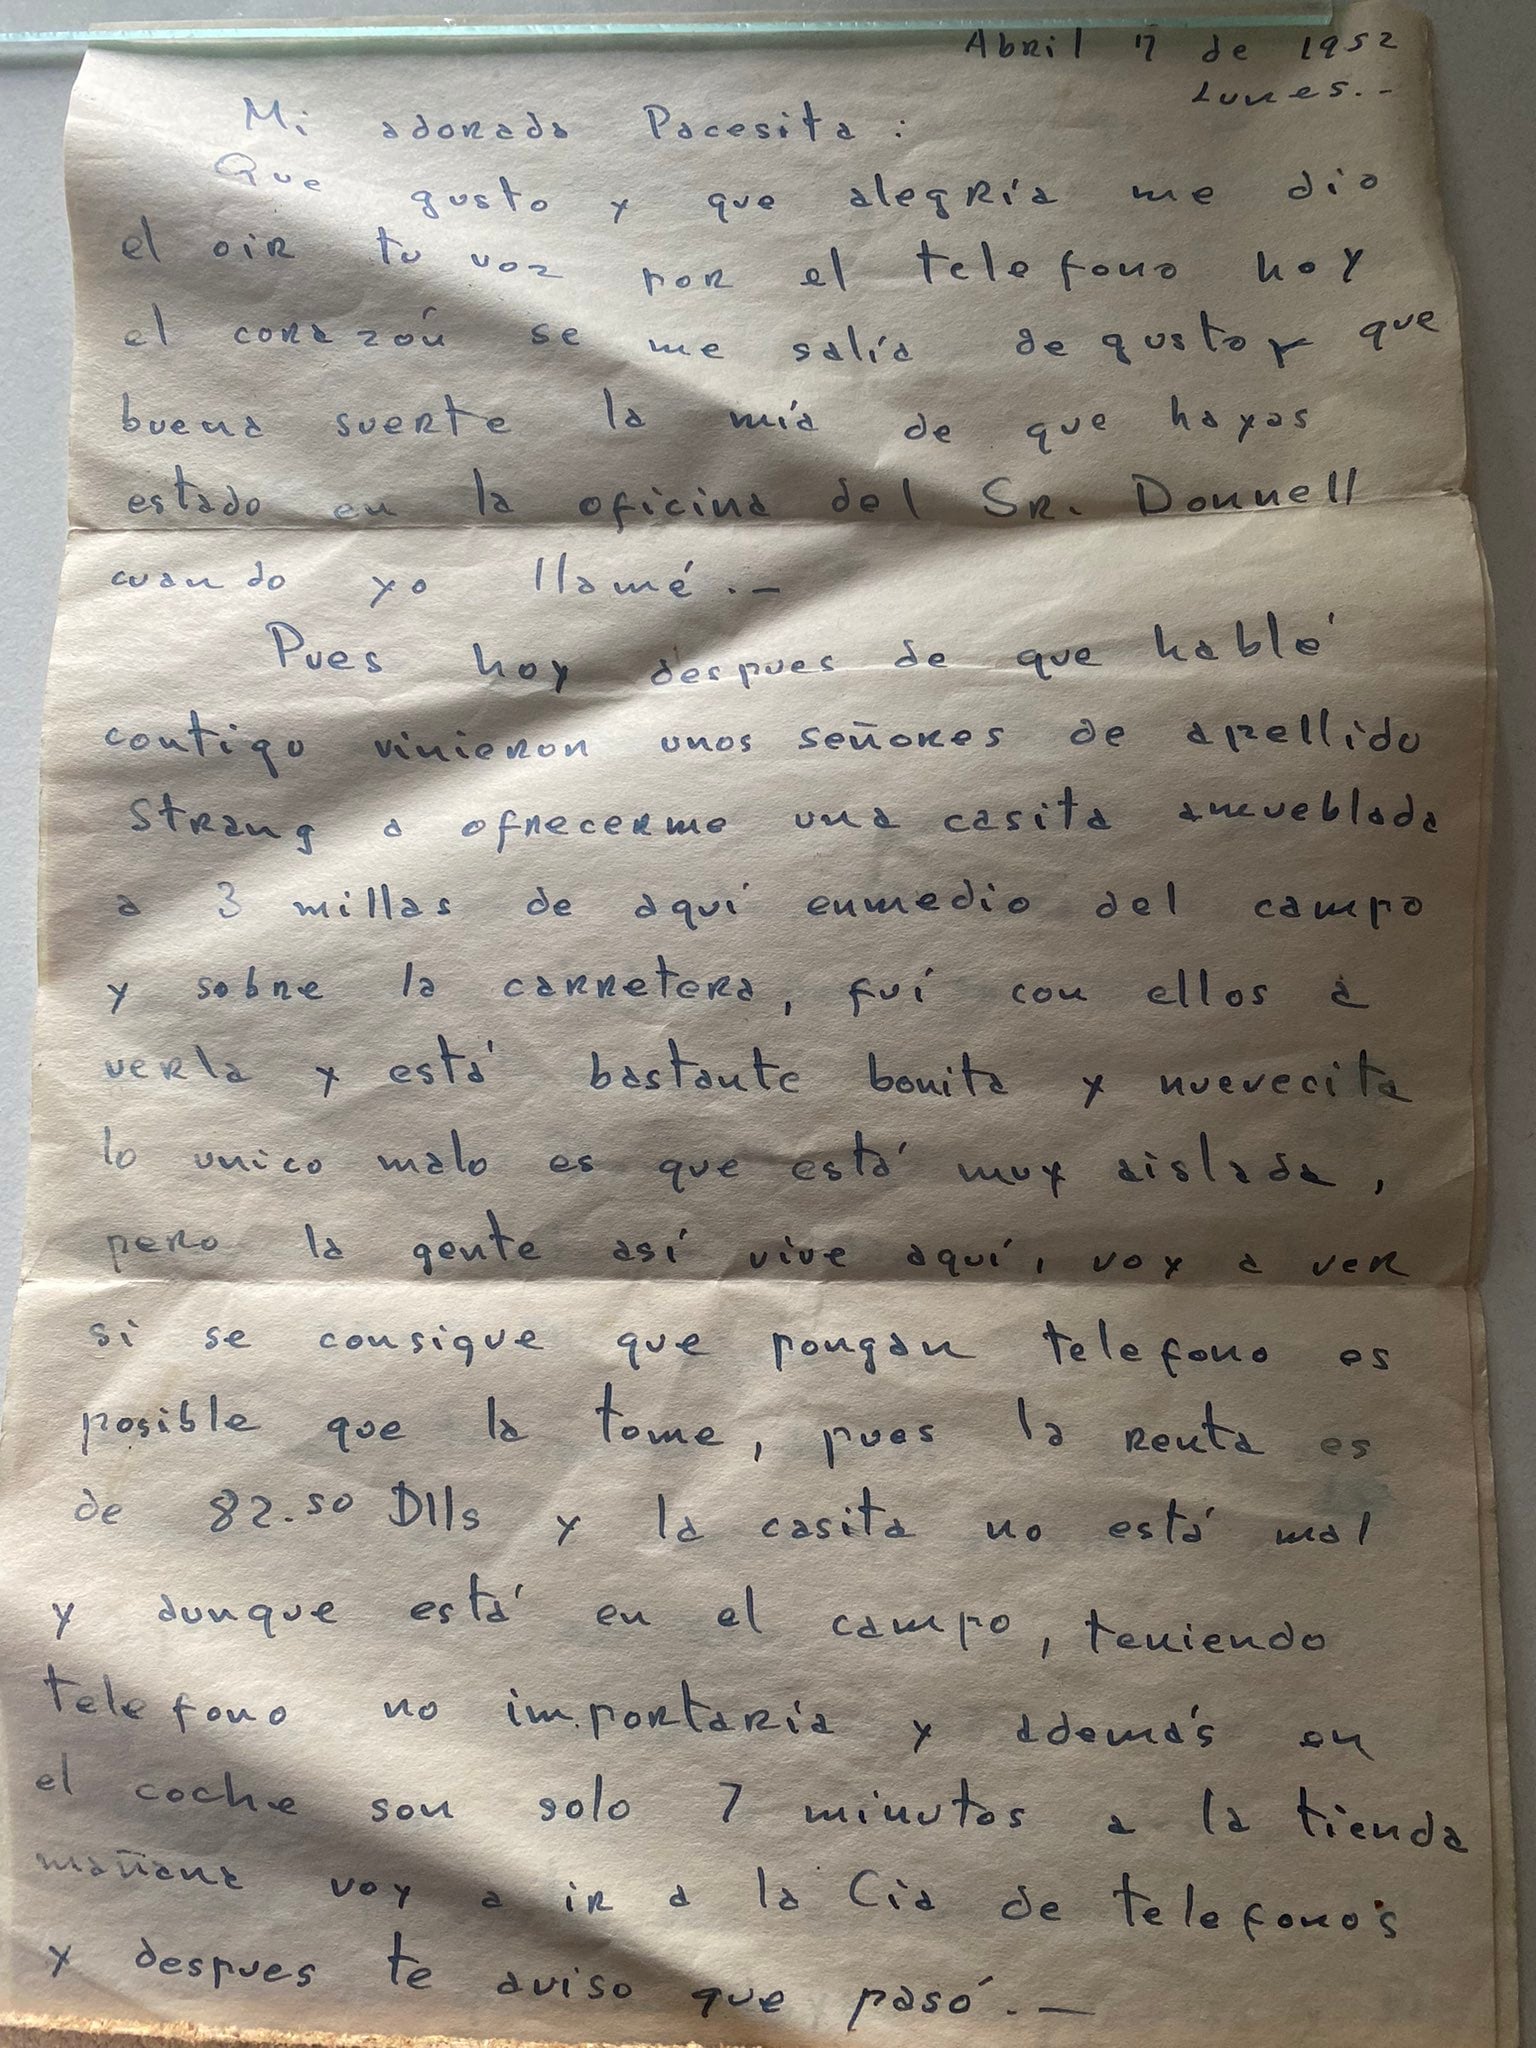 Abril 7 de 1952
Lunes.-
Mi adorada Pacesita:
Que gusto y que alegría me dio
el oir tu voz por el telefono hoy
el corazón se me salía de gusto y que
buena suerte la mía de que hayas
estado en la oficina del Sr. Donnell
cuando yo llamé.-
Pues hoy despues de que hablé
contigo vinieron unos señores de apellido
Strang a ofrecerme una casita amueblada
a 3 millas de aquí enmedio del campo
y sobre la carretera, fuí con ellos a
verla y está bastante bonita y nuevecita
lo unico malo es que está muy aislada,
pero la gente así vive aquí, voy a ver
si se consigue que pongan telefono es
posible que la tome, pues la renta es
de 82.50 Dlls y la casita no está mal
y aunque está en el campo, teniendo
telefono no importaría y además en
el coche son solo 7 minutos a la tienda
mañana voy a ir a la Cia de telefonos
y despues te aviso que pasó.-